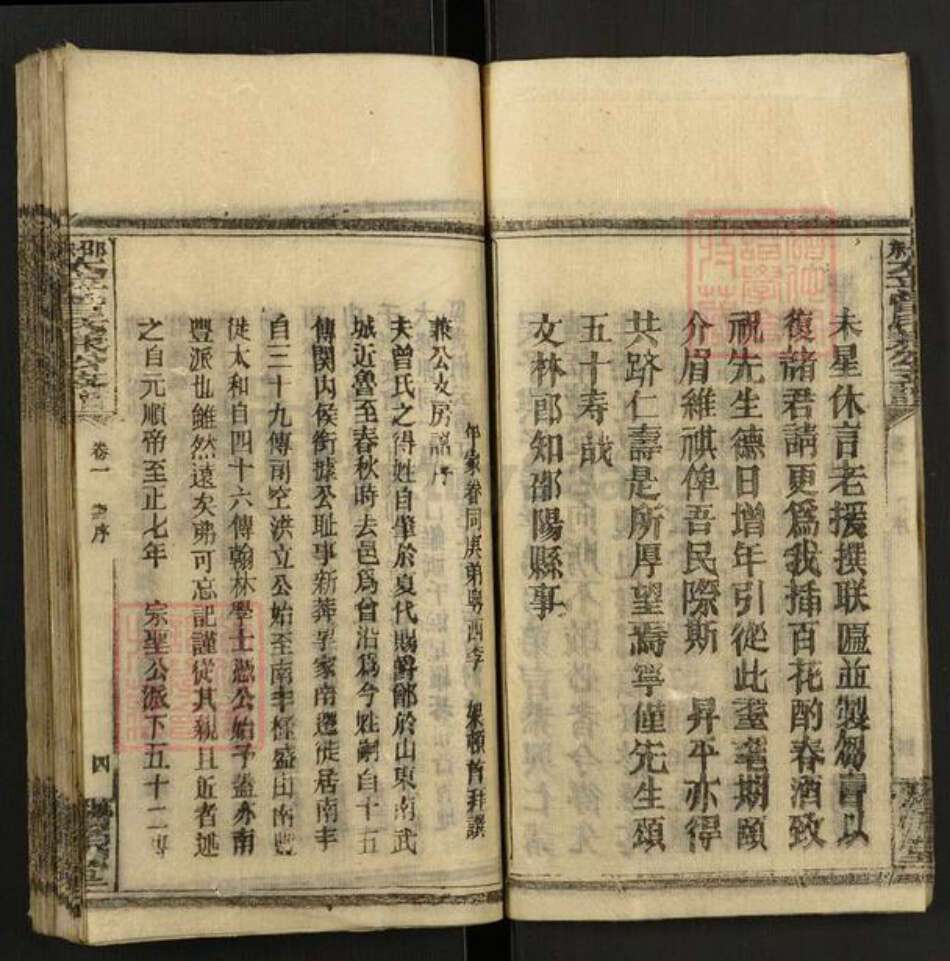 未星休言老援撰联匾並製芻言以
復諸君請更爲我插百花酌春酒致
祝先生德日增年引從此耋耄期頤
介眉維祺俾吾民際斯 昇平亦得
共躋仁壽是所厚望焉寧僅先生頌
五十寿哉
文林郎知邵陽縣事
年家眷同庚弟粤西李 頓首拜譔
兼公支房譜序
夫曾氏之得姓自肇於夏代賜爵鄫於山東南武
城近魯至春秋時去邑爲曾沿爲今姓嗣自十五
傳関内侯衔據公耻事新莽挈家南遷徙居南丰
自三十九傳司空洪立公始至南丰極盛由南豐
徙太和自四十六傳翰林學士 公始予盖亦南
豐派也雖然遠矣弗可忘記謹從其親且近者述
之自元順帝至正七年 宗聖公派下五十二傳
卷一 序
四